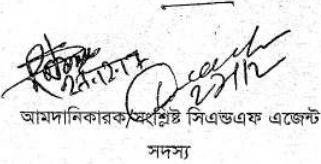 ২৭.১২.১৭
২৭/১২
আমদানিকারক/সংশ্লিষ্ট সিএন্ডএফ এজেন্ট
সদস্য